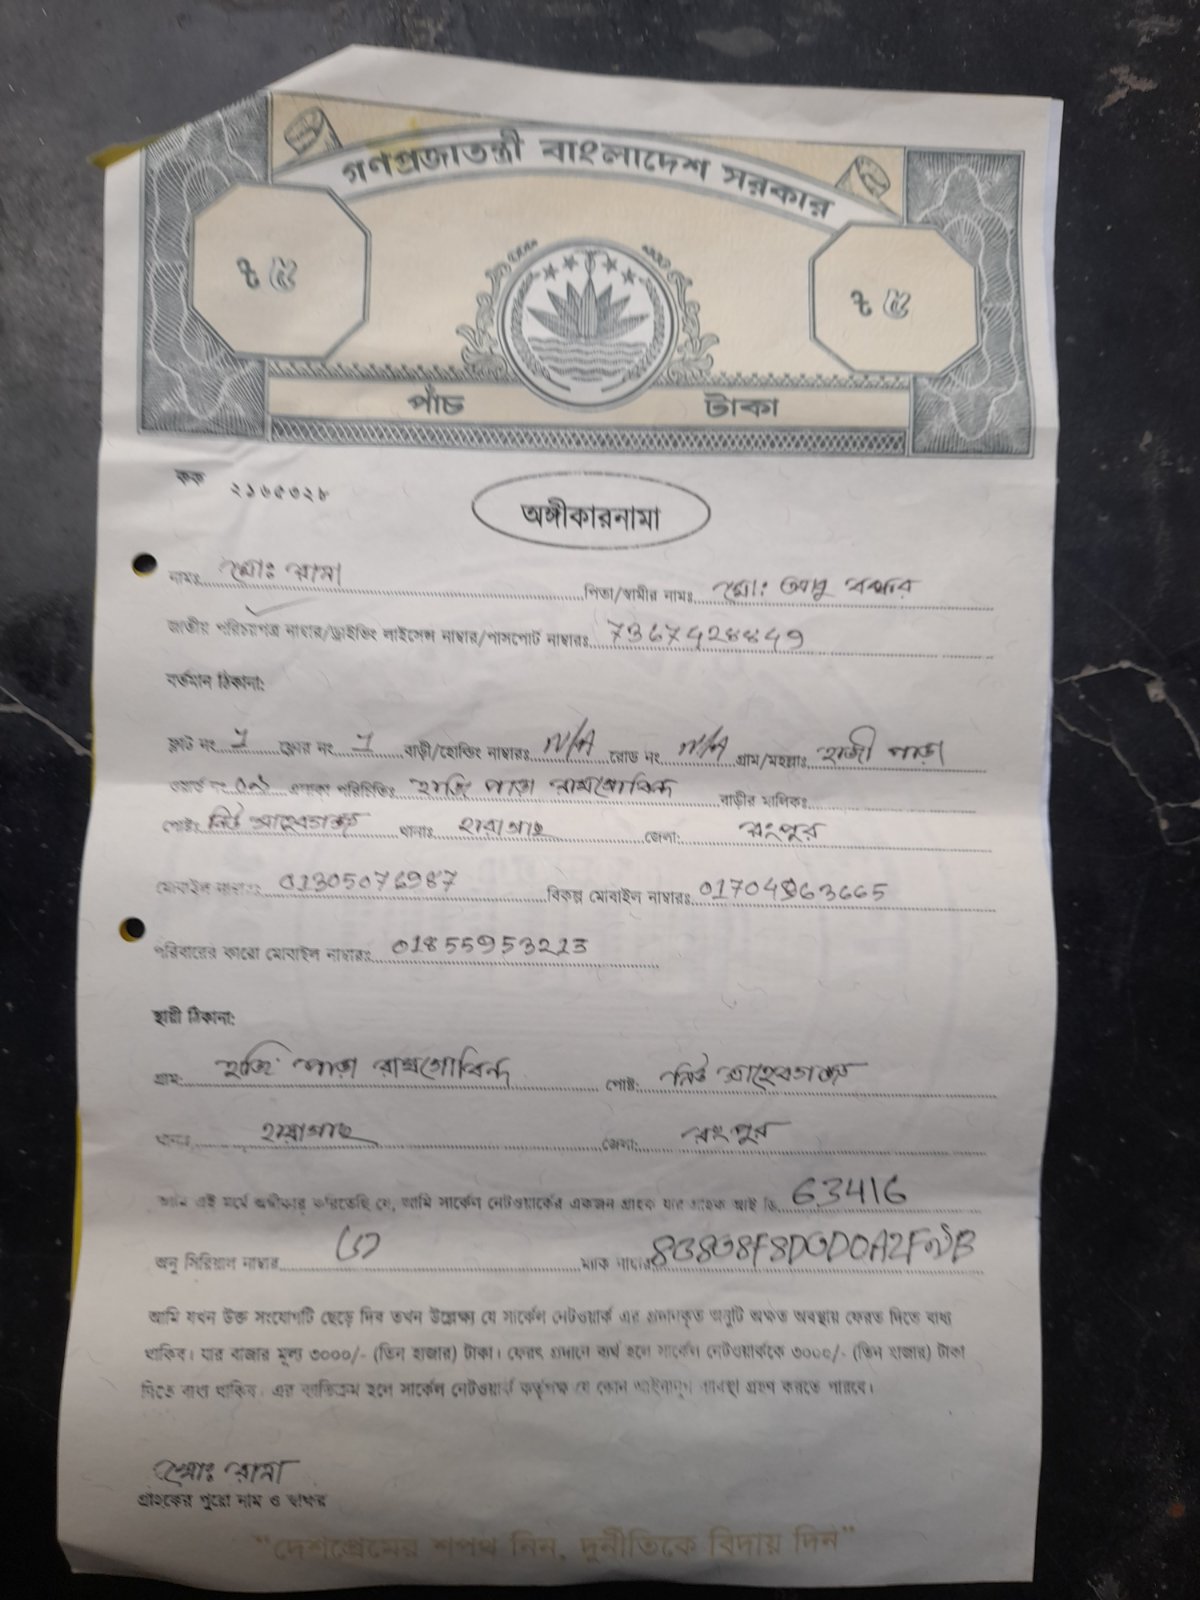 গণপ্রজাতন্ত্রী বাংলাদেশ সরকার
৳ ৫ ৳ ৫
পাঁচ টাকা
কক ২১৬৫৩২৮
অঙ্গীকারনামা
নামঃ মোঃ রানা পিতা/স্বামীর নামঃ মোঃ আবু বক্কর
জাতীয় পরিচয়পত্র নাম্বার/ড্রাইভিং লাইসেন্স নাম্বার/পাসপোর্ট নাম্বারঃ
বর্তমান ঠিকানা:
ফ্লাট নং 1 ফ্লোর নং 1 বাড়ী/হোল্ডিং নাম্বারঃ N/A রোড নং N/A গ্রাম/মহল্লাঃ হাজী পাড়া
ওয়ার্ড নং ০৯ এলাকা পরিচিতিঃ হাজি পাড়া রামগোবিন্দ বাড়ীর মালিকঃ
পোষ্টঃ নিউ সাহেবগঞ্জ থানাঃ হারাগাছ জেলা: রংপুর
মোবাইল নাম্বারঃ 01305076987 বিকল্প মোবাইল নাম্বারঃ
পরিবারের কারো মোবাইল নাম্বারঃ 01855953213
স্থায়ী ঠিকানা:
গ্রাম: হাজি পাড়া রামগোবিন্দ পোষ্ট: নিউ সাহেবগঞ্জ
থানাঃ হারাগাছ জেলা: রংপুর
আমি এই মর্মে অঙ্গীকার করিতেছি যে, আমি সার্কেল নেটওয়ার্কের একজন গ্রাহক যার গ্রাহক আই ডি 63416
অনু সিরিয়াল নাম্বার ম্যাক নাম্বার
আমি যখন উক্ত সংযোগটি ছেড়ে দিব তখন উল্লেক্ষ্য যে সার্কেল নেটওয়ার্ক এর প্রদানকৃত অনুটি অক্ষত অবস্থায় ফেরত দিতে বাধ্য
থাকিব। যার বাজার মূল্য ৩০০০/- (তিন হাজার) টাকা। ফেরৎ প্রদানে ব্যর্থ হলে সার্কেল নেটওয়ার্ককে ৩০০০/- (তিন হাজার) টাকা
দিতে বাধ্য থাকিব। এর ব্যতিক্রম হলে সার্কেল নেটওয়ার্ক কর্তৃপক্ষ যে কোন আইনানুগ ব্যবস্থা গ্রহণ করতে পারবে।
মোঃ রানা
গ্রাহকের পুরো নাম ও স্বাক্ষর
"দেশপ্রেমের শপথ নিন, দুর্নীতিকে বিদায় দিন"